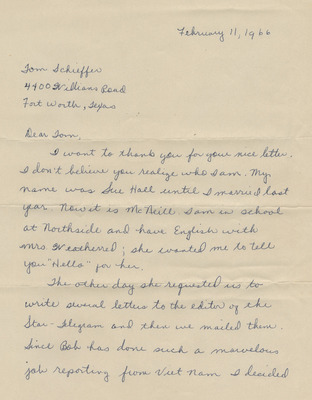 February 11, 1966
Tom Schieffer
4400 Williams Road
Fort Worth, Texas
Dear Tom,
I want to thank you for your nice letter.
I don't believe you realize who I am. My
name was Sue Hall until I married last
year. Now it is McNeill. I am in school
at Northside and have English with
Mrs. Weatherred; she wanted me to tell
you "Hello" for her.
The other day she requested us to
write several letters to the editor of the
Star-Telegram and then we mailed them.
Since Bob has done such a marvelous
job reporting from Viet Nam I decided